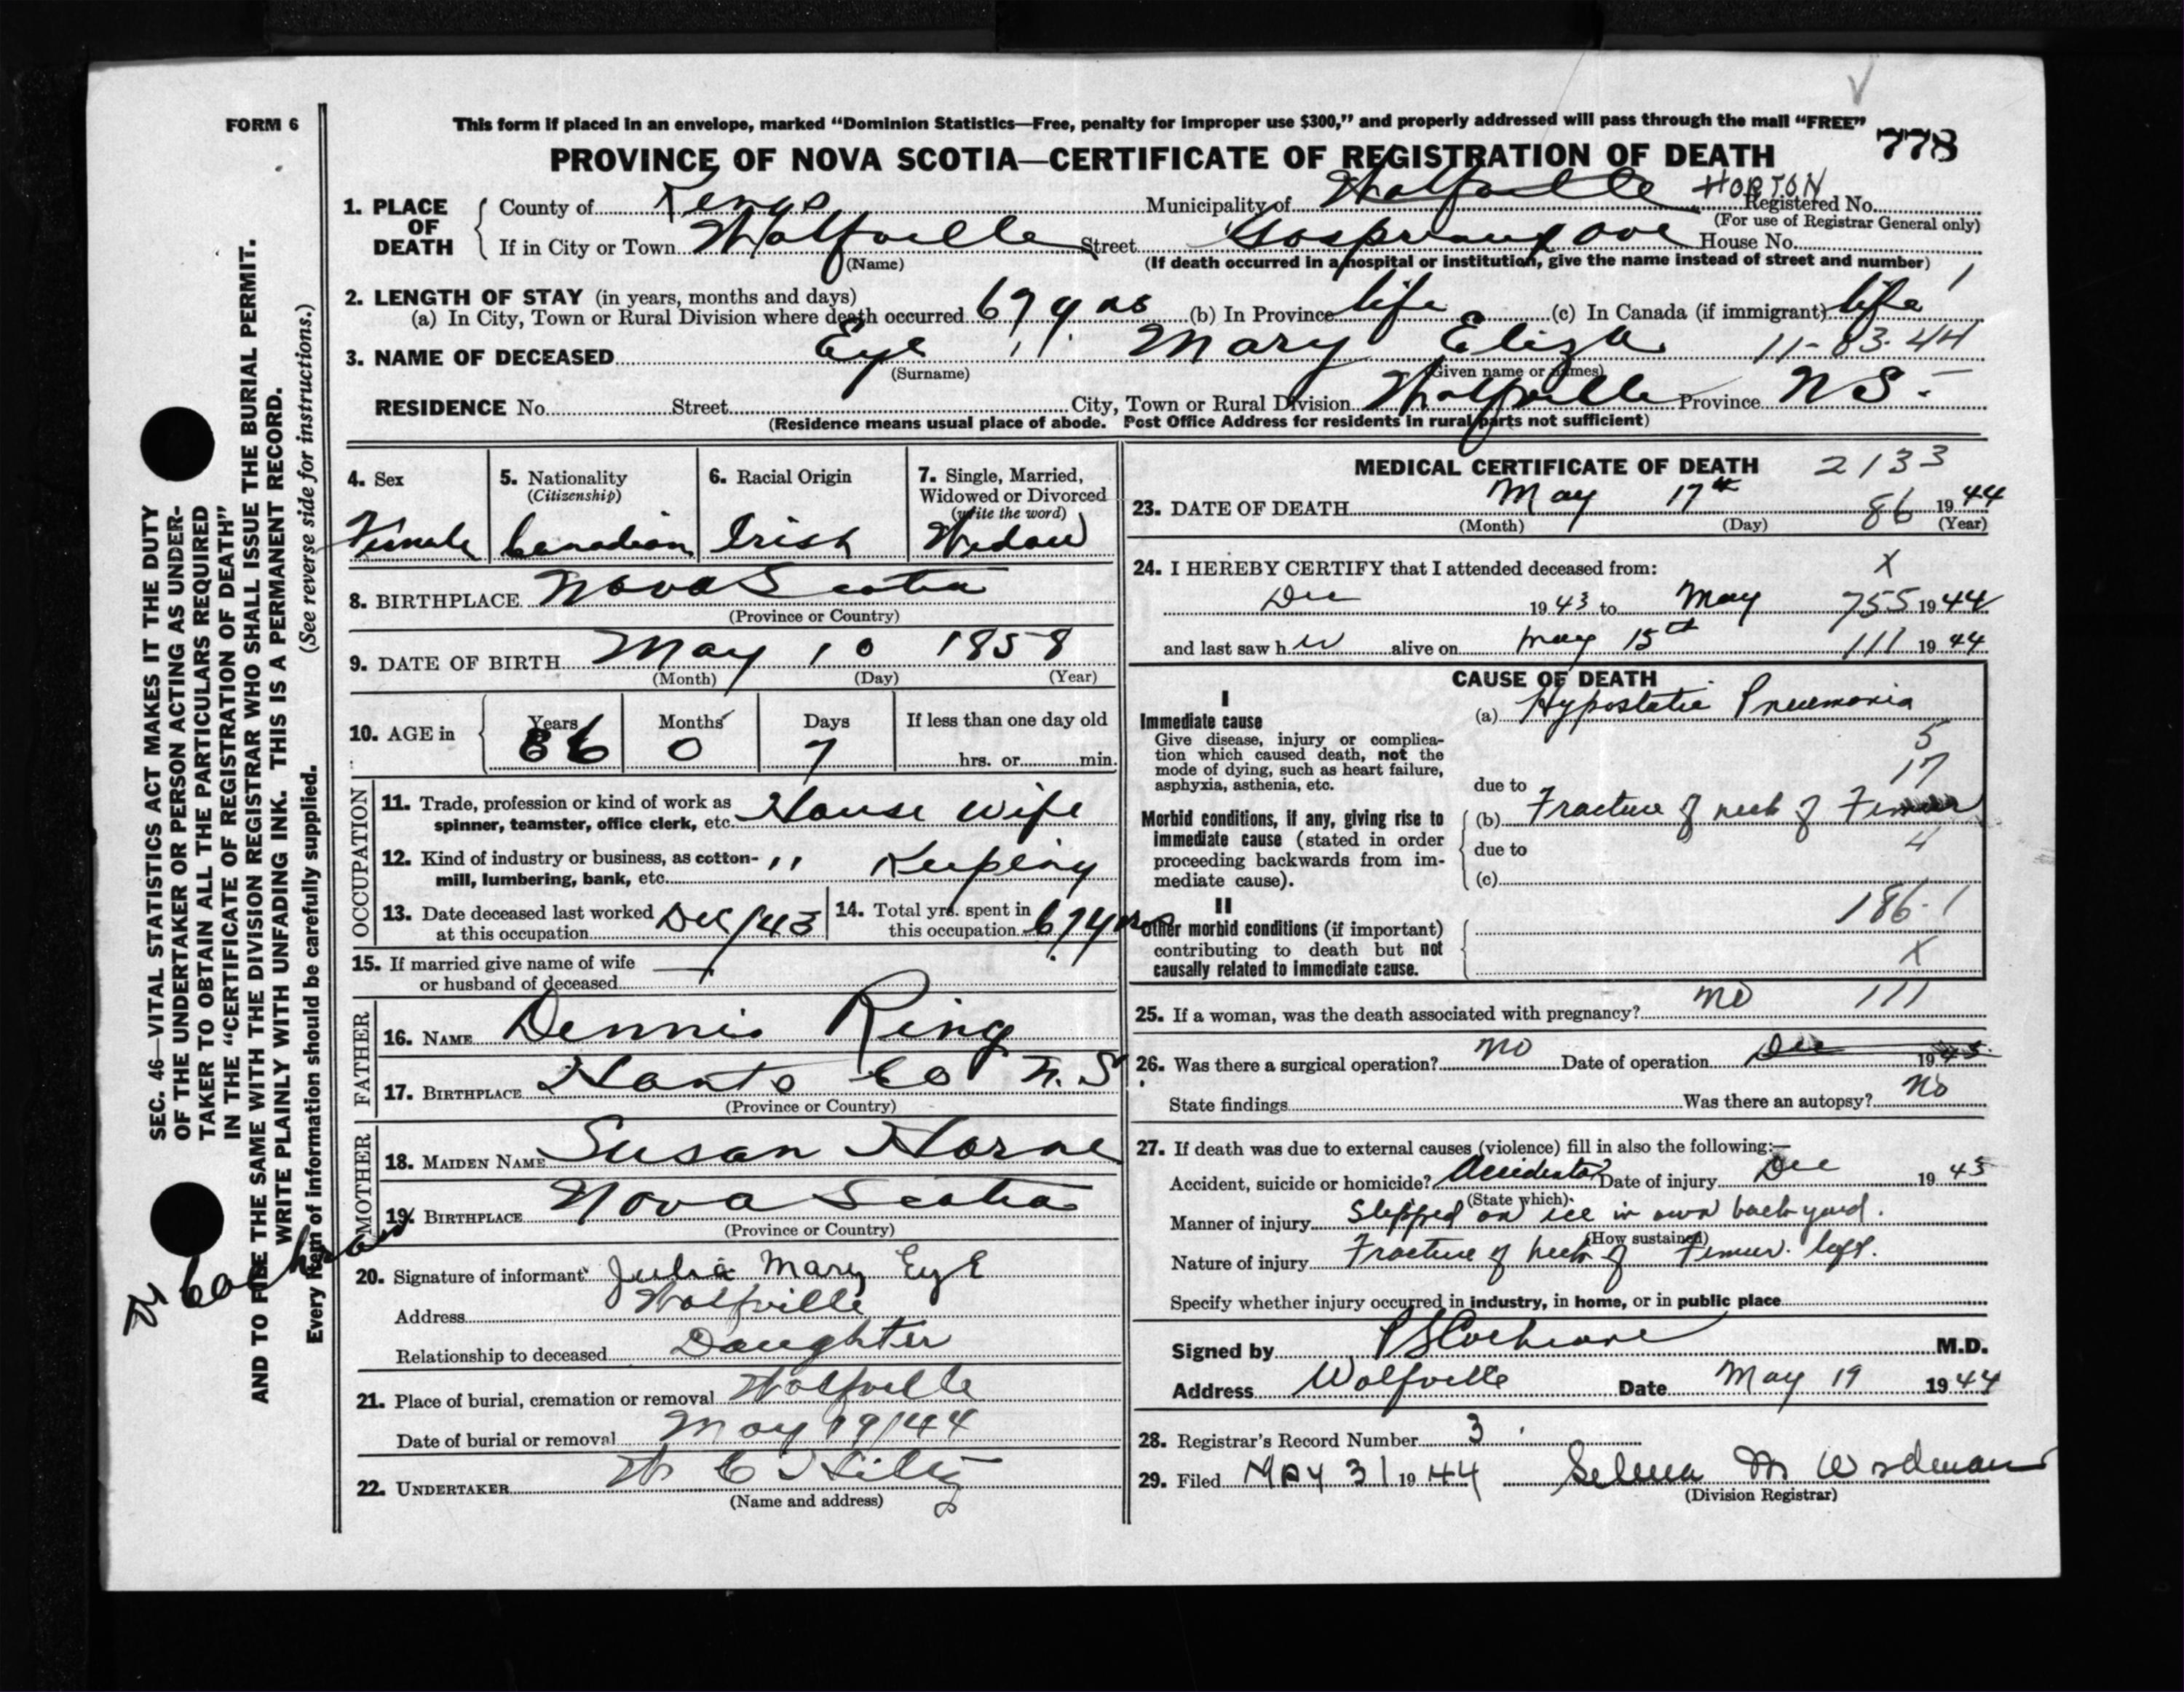 FORM 6
This form if placed in an envelope, marked “Dominion Statistics—Free, penalty for improper use $300,” and properly addressed will pass through the mail “FREE”
PROVINCE OF NOVA SCOTIA—CERTIFICATE OF REGISTRATION OF DEATH 778
1. PLACE OF DEATH County of Kings Municipality of Wolfville HORTON Registered No.
(For use of Registrar General only)
If in City or Town Wolfville Street Gaspreaux ave House No.
(Name) (If death occurred in a hospital or institution, give the name instead of street and number)
2. LENGTH OF STAY (in years, months and days)
(a) In City, Town or Rural Division where death occurred 67 yrs (b) In Province life (c) In Canada (if immigrant) life
3. NAME OF DECEASED Eye Mary Eliza 11-03-44
(Surname) (Given name or names)
RESIDENCE No. Street City, Town or Rural Division Wolfville Province N S.
(Residence means usual place of abode. Post Office Address for residents in rural parts not sufficient)
4. Sex Female
5. Nationality (Citizenship) Canadian
6. Racial Origin Irish
7. Single, Married, Widowed or Divorced (write the word) Widow
8. BIRTHPLACE Nova Scotia
(Province or Country)
9. DATE OF BIRTH May 10 1858
(Month) (Day) (Year)
10. AGE in Years 86 Months 0 Days 7 If less than one day old hrs. or min.
OCCUPATION
11. Trade, profession or kind of work as spinner, teamster, office clerk, etc. House wife
12. Kind of industry or business, as cotton-mill, lumbering, bank, etc. " Keeping
13. Date deceased last worked at this occupation Dec/43
14. Total yrs. spent in this occupation 67 yrs
15. If married give name of wife or husband of deceased —
FATHER
16. NAME Dennis Ring
17. BIRTHPLACE Hants Co N.S
(Province or Country)
MOTHER
18. MAIDEN NAME Susan Horne
19. BIRTHPLACE Nova Scotia
(Province or Country)
20. Signature of informant Julia Mary Eye
Address Wolfville
Relationship to deceased Daughter
21. Place of burial, cremation or removal Wolfville
Date of burial or removal May 19/44
22. UNDERTAKER
(Name and address)
MEDICAL CERTIFICATE OF DEATH 2133
23. DATE OF DEATH May 17th 86 1944
(Month) (Day) (Year)
24. I HEREBY CERTIFY that I attended deceased from: X
Dec 1943 to May 755 1944
and last saw h er alive on May 15th 111 1944
CAUSE OF DEATH
I
Immediate cause (a) Hypostatic Pneumonia
Give disease, injury or complication which caused death, not the mode of dying, such as heart failure, asphyxia, asthenia, etc.
5
17
due to
Morbid conditions, if any, giving rise to immediate cause (stated in order proceeding backwards from immediate cause).
(b) Fracture of neck of Femur
due to 4
(c)
II 186-1
Other morbid conditions (if important) contributing to death but not causally related to immediate cause. X
25. If a woman, was the death associated with pregnancy? no 111
26. Was there a surgical operation? no Date of operation Dec 1943
State findings Was there an autopsy? no
27. If death was due to external causes (violence) fill in also the following:—
Accident, suicide or homicide? Accidental Date of injury Dec 1943
(State which)
Manner of injury Slipped on ice in own back yard.
(How sustained)
Nature of injury Fracture of neck of Femur. left.
Specify whether injury occurred in industry, in home, or in public place
Signed by P S Cochrane M.D.
Address Wolfville Date May 19 1944
28. Registrar's Record Number 3
29. Filed MAY 31 1944 Selena M Wordman
(Division Registrar)
SEC. 46—VITAL STATISTICS ACT MAKES IT THE DUTY
OF THE UNDERTAKER OR PERSON ACTING AS UNDER-
TAKER TO OBTAIN ALL THE PARTICULARS REQUIRED
IN THE “CERTIFICATE OF REGISTRATION OF DEATH”
AND TO FILE THE SAME WITH THE DIVISION REGISTRAR WHO SHALL ISSUE THE BURIAL PERMIT.
WRITE PLAINLY WITH UNFADING INK. THIS IS A PERMANENT RECORD.
Every item of information should be carefully supplied. (See reverse side for instructions.)